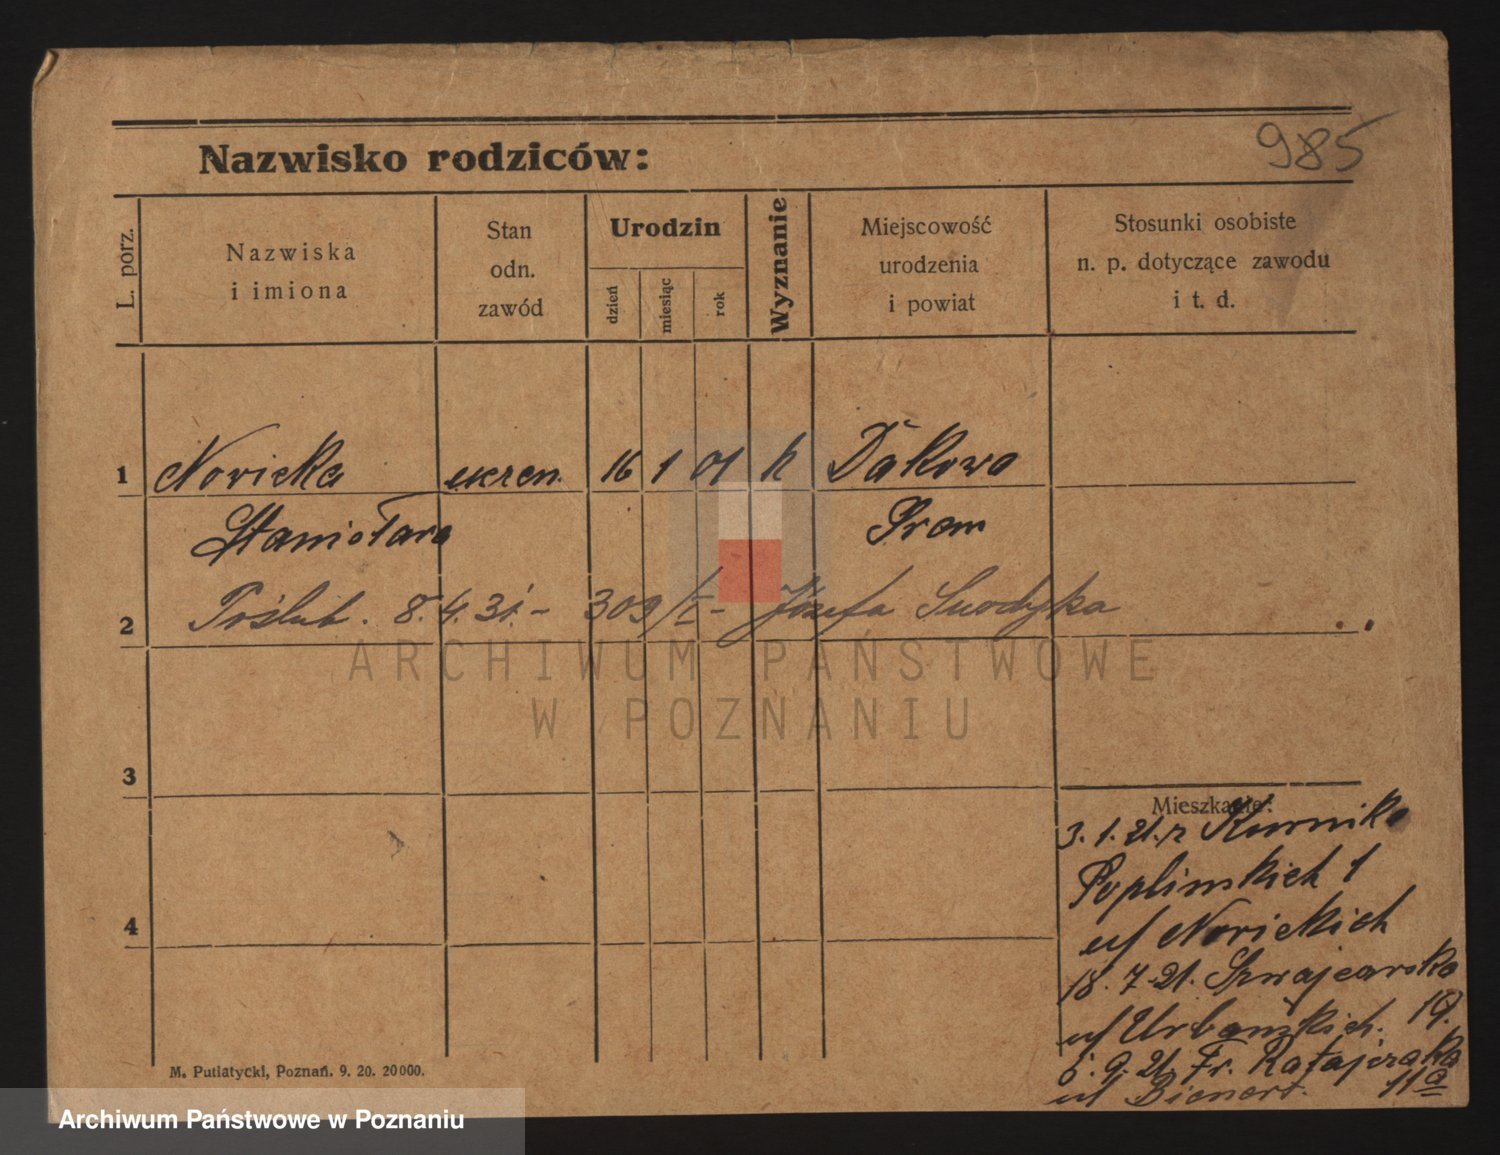 985
Nazwisko rodziców:
L. porz.
Nazwiska
i imiona
Stan
odn.
zawód
Urodzin
dzień
miesiąc
rok
Wyznanie
Miejscowość
urodzenia
i powiat
Stosunki osobiste
n. p. dotyczące zawodu
i t. d.
1 Nowicka uczen. 16 1 01 k Dąkowo
Stanisława Srem
2 Poślub. 8.4.31.- 309/I- Józefa
3
4
Mieszkanie:
3.1.21. z Kurnika
Poplinskich 1
u/ Nowickich
18.7.21. Szwajcarska
u/ Urbańskich. 19.
6.9.21. Fr. Ratajczaka
u/ Bienert. 11a
M. Putiatycki, Poznań. 9. 20. 20000.
ARCHIWUM PAŃSTWOWE
W POZNANIU
Archiwum Państwowe w Poznaniu